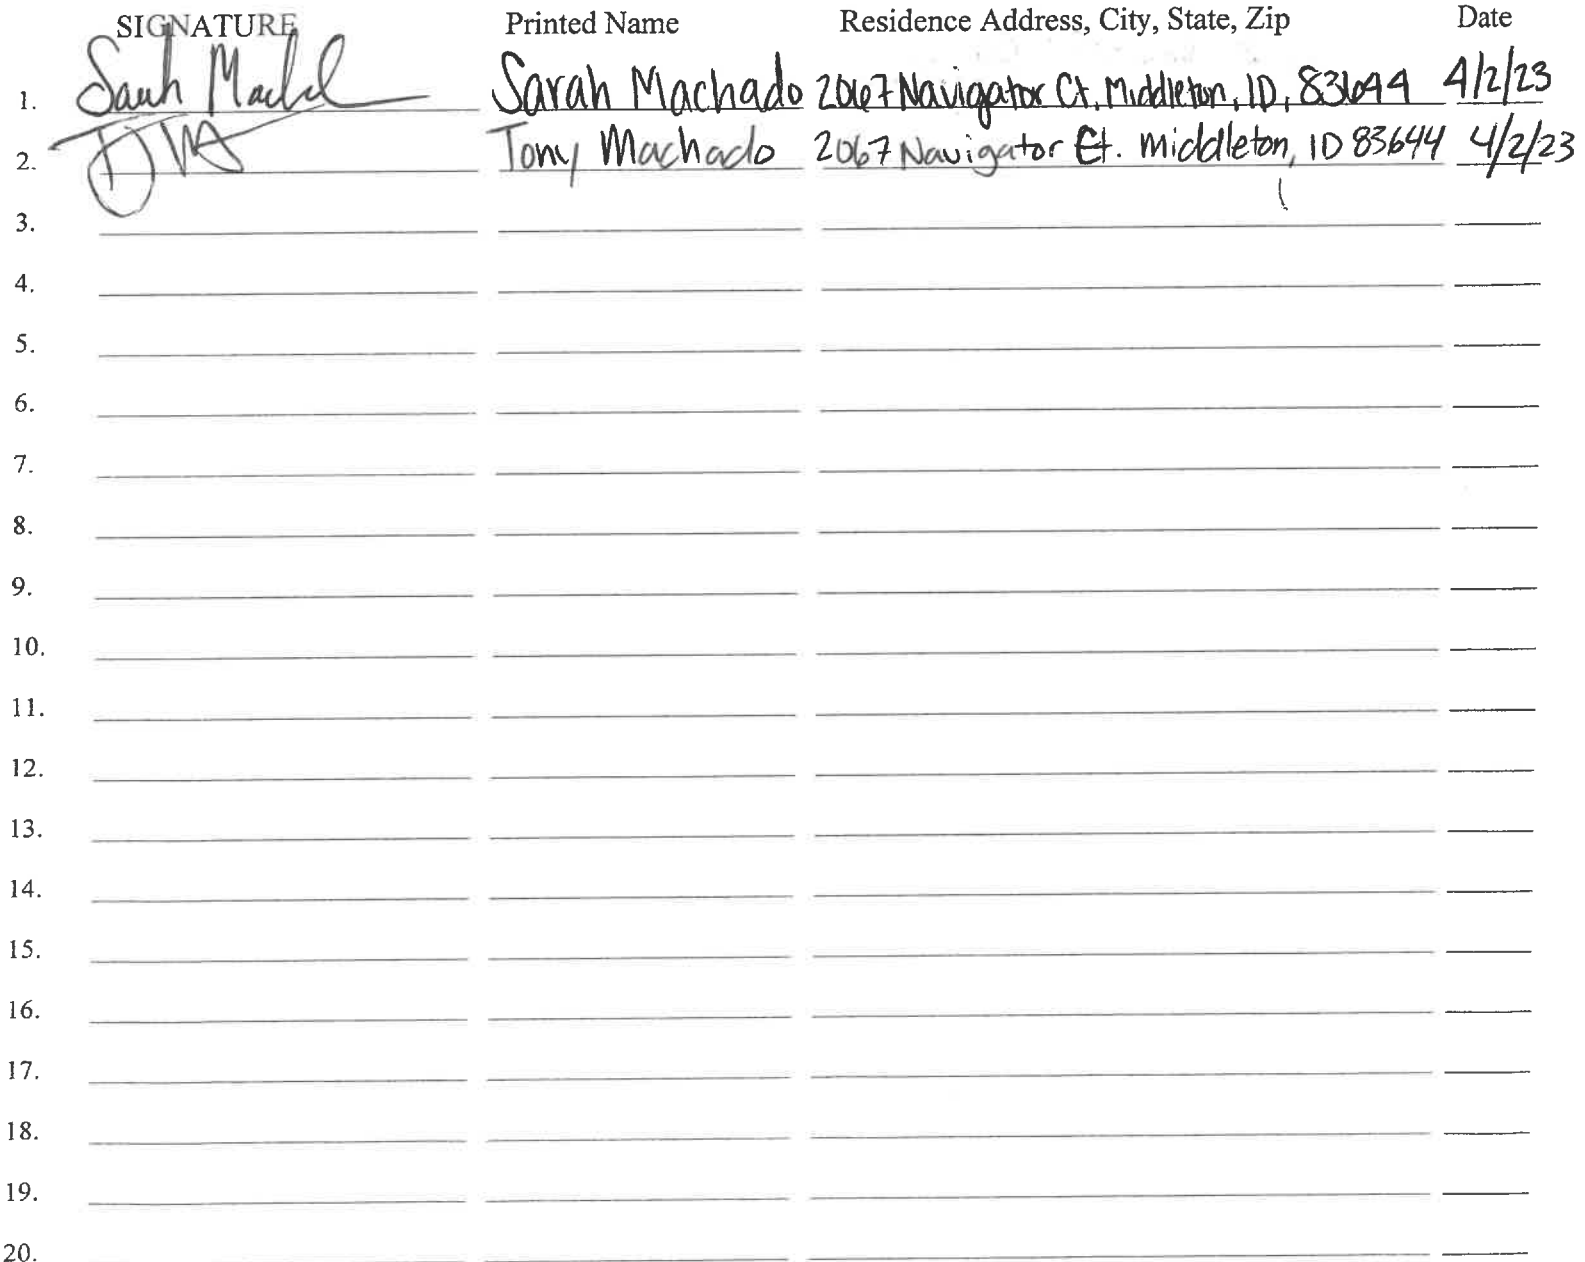 SIGNATURE Printed Name Residence Address, City, State, Zip Date
1. Sarah Machado 2067 Navigator Ct. Middleton, ID, 83644 4/2/23
2. Tony Machado 2067 Navigator Ct. Middleton, ID 83644 4/2/23
3.
4.
5.
6.
7.
8.
9.
10.
11.
12.
13.
14.
15.
16.
17.
18.
19.
20.